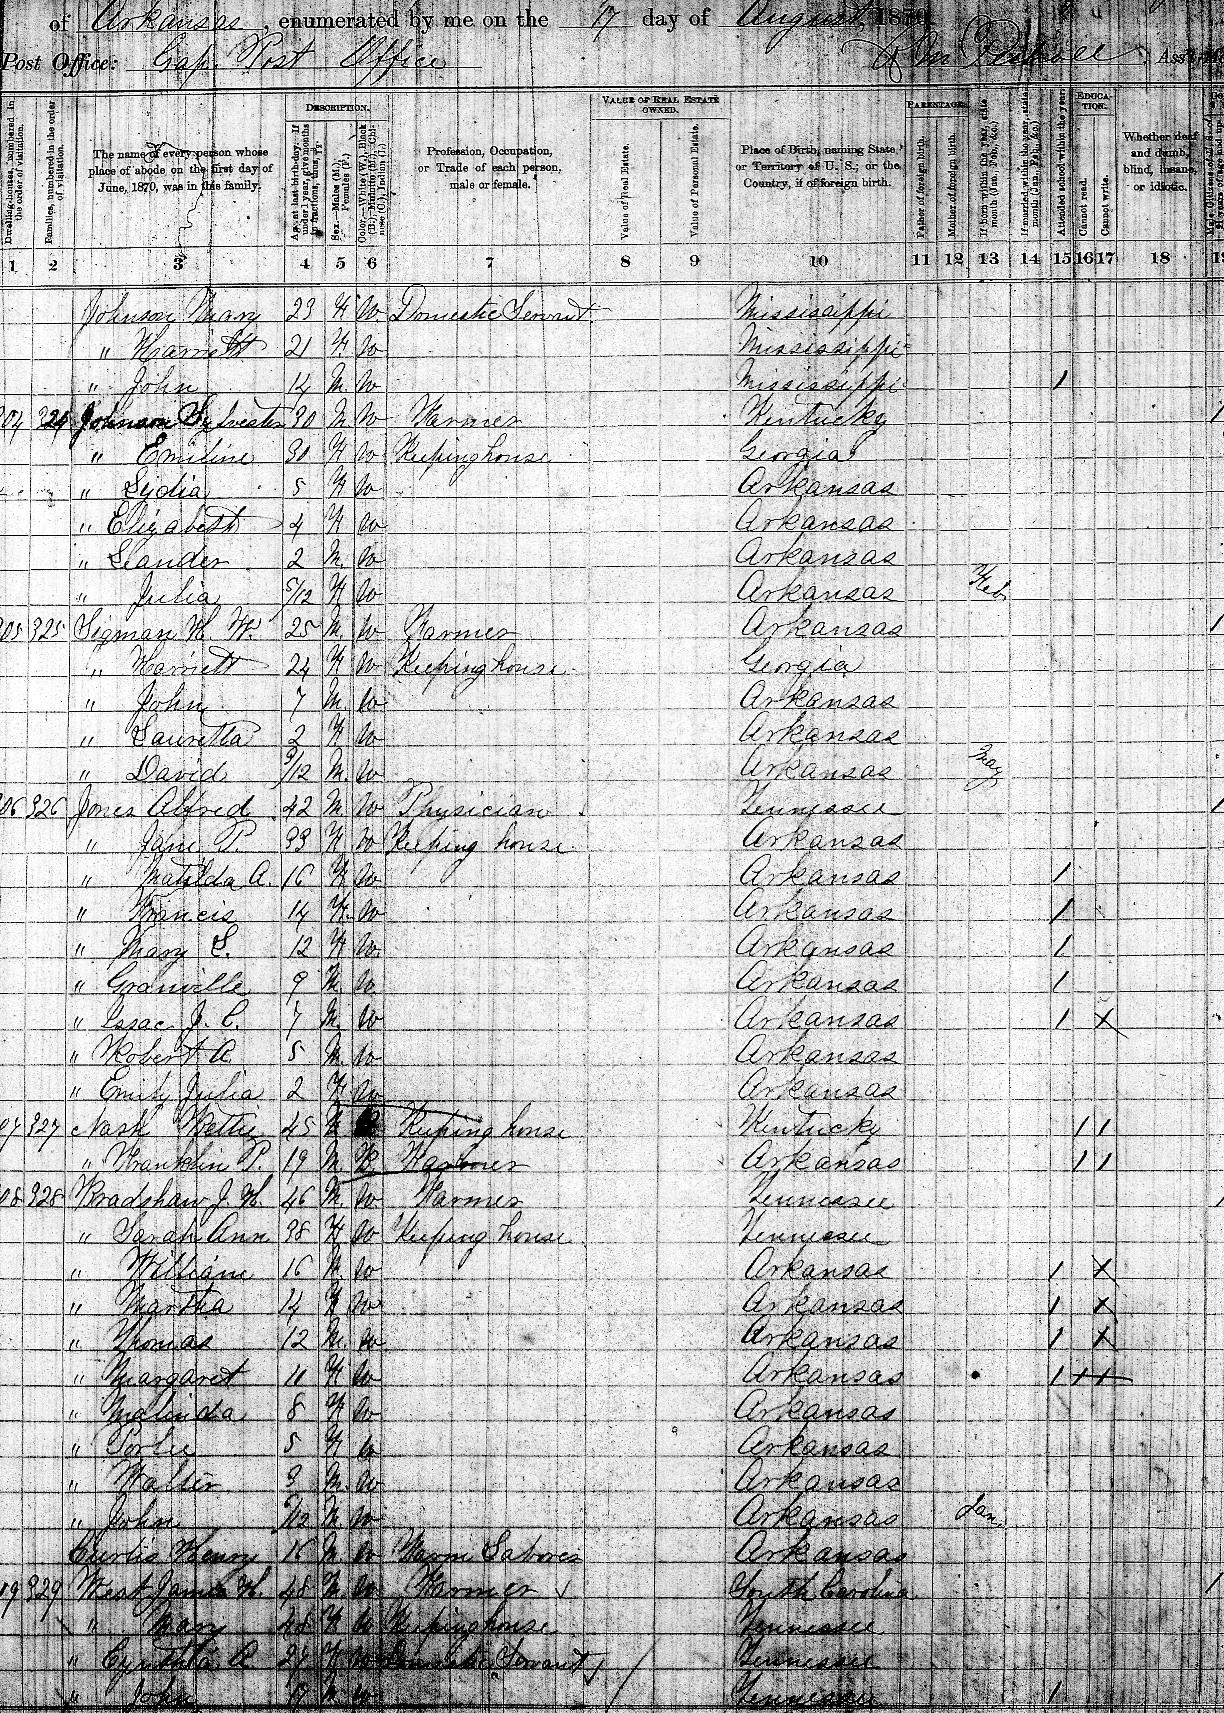 of Arkansas, enumerated by me on the 17 day of August, 1870.
Post Office: Gap Post Office Ass't
DESCRIPTION. VALUE OF REAL ESTATE OWNED. PARENTAGE. EDUCATION.
Dwelling-houses, numbered in the order of visitation.
Families, numbered in the order of visitation.
The name of every person whose place of abode on the first day of June, 1870, was in this family.
Age at last birth-day. If under 1 year, give months in fractions, thus, 3/12
Sex.—Males (M.), Females (F.)
Color.—White (W.), Black (B.), Mulatto (M.), Chinese (C.), Indian (I.)
Profession, Occupation, or Trade of each person, male or female.
Value of Real Estate.
Value of Personal Estate.
Place of Birth, naming State or Territory of U. S.; or the Country, if of foreign birth.
Father of foreign birth.
Mother of foreign birth.
If born within the year, state month (Jan., Feb., &c.)
If married within the year, state month (Jan., Feb., &c.)
Attended school within the year.
Cannot read.
Cannot write.
Whether deaf and dumb, blind, insane, or idiotic.
1 2 3 4 5 6 7 8 9 10 11 12 13 14 15 16 17 18 19
Johnson Mary 23 F W Domestic Servant Mississippi
" Harriett 21 F W Mississippi
" John 14 M W Mississippi 1
304 324 Johnson Sylvester 30 M W Farmer Kentucky 1
" Emiline 30 F W Keeping house Georgia
" Lydia 5 F W Arkansas
" Elizabeth 4 F W Arkansas
" Leander 2 M W Arkansas
" Julia 5/12 F W Arkansas Feb
305 325 Sigman H. W. 25 M W Farmer Arkansas 1
" Harriett 24 F W Keeping house Georgia
" John 7 M W Arkansas
" Lauretta 2 F W Arkansas
" David /12 M W Arkansas May
306 326 Jones Alfred 42 M W Physician Tennessee 1
" Jane P. 33 F W Keeping house Arkansas
" Matilda A. 16 F W Arkansas 1
" Francis 14 F W Arkansas 1
" Mary E. 12 F W Arkansas 1
" Granville 9 M W Arkansas 1
" Isaac J. C. 7 M W Arkansas 1 X
" Robert A. 5 M W Arkansas
" Emily Julia 2 F W Arkansas
307 327 Nash Hettie 45 F Keeping house Kentucky 1 1
" Franklin P. 19 M Farmer Arkansas 1 1
308 328 Bradshaw J. H. 46 M W Farmer Tennessee 1
" Sarah Ann 38 F W Keeping house Tennessee
" William 16 M W Arkansas 1 X
" Martha 14 F W Arkansas 1 X
" Thomas 12 M W Arkansas 1 X
" Margaret 11 F W Arkansas 1 1 1
" Malinda 8 F W Arkansas
" 5 F W Arkansas
" Walter 3 M W Arkansas
" John /12 M W Arkansas Jan
Curtis Henry 16 M W Farm Laborer Arkansas
19 329 West James H. 48 M W Farmer South Carolina 1
" Mary 48 F W Keeping house Tennessee
" Cynthia A 29 F W Domestic Servant Tennessee
" John 17 M W Tennessee 1